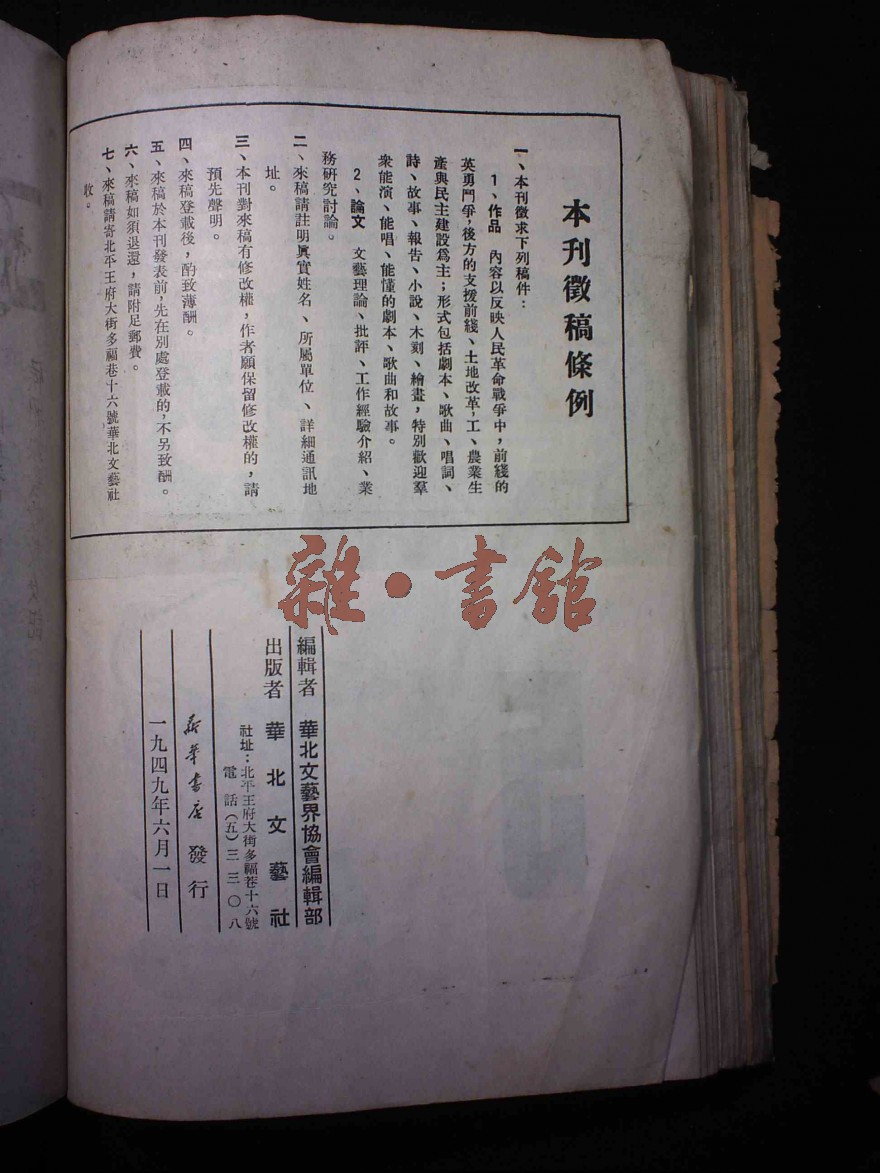 本刊徵稿條例
一、本刊徵求下列稿件：
1、作品　內容以反映人民革命戰爭中，前綫的
英勇鬥爭，後方的支援前綫、土地改革，工、農業生
產與民主建設爲主；形式包括劇本、歌曲、唱詞、
詩、故事、報告、小說、木刻、繪畫，特別歡迎羣
衆能演、能唱、能懂的劇本、歌曲和故事。
2、論文　文藝理論、批評、工作經驗介紹、業
務研究討論。
二、來稿請註明眞實姓名、所屬單位、詳細通訊地
址。
三、本刊對來稿有修改權，作者願保留修改權的，請
預先聲明。
四、來稿登載後，酌致薄酬。
五、來稿於本刊發表前，先在別處登載的，不另致酬。
六、來稿如須退還，請附足郵費。
七、來稿請寄北平王府大街多福巷十六號華北文藝社
收。
雜·書館
編輯者　華北文藝界協會編輯部
出版者　華北文藝社
社址：北平王府大街多福巷十六號
電話（五）三三〇八
新華書店　發行
一九四九年六月一日